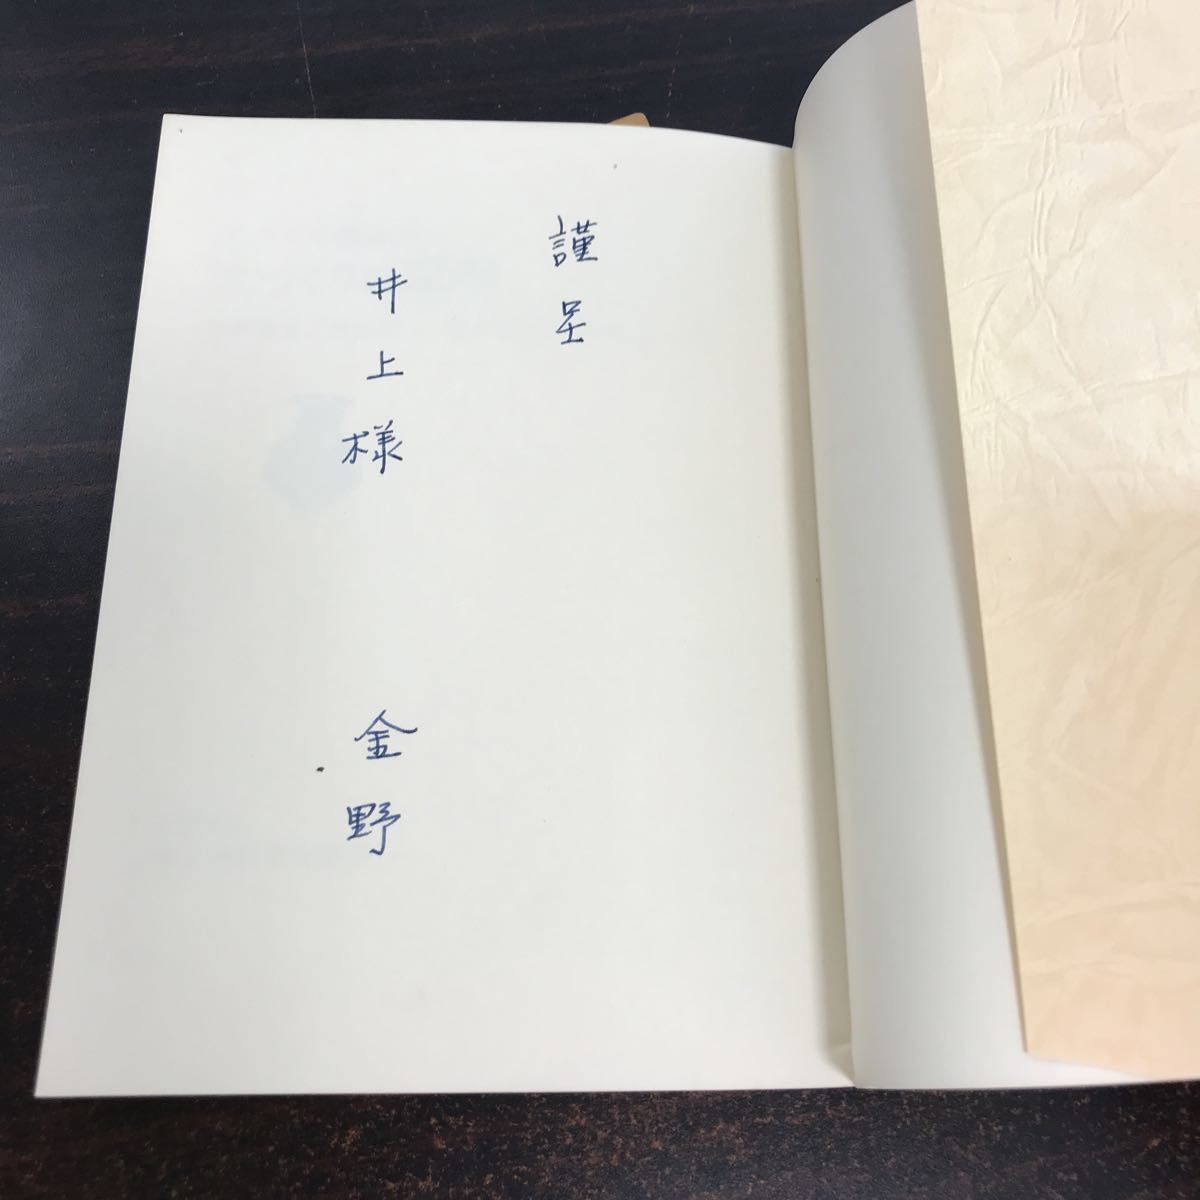 謹呈
井上様
金野